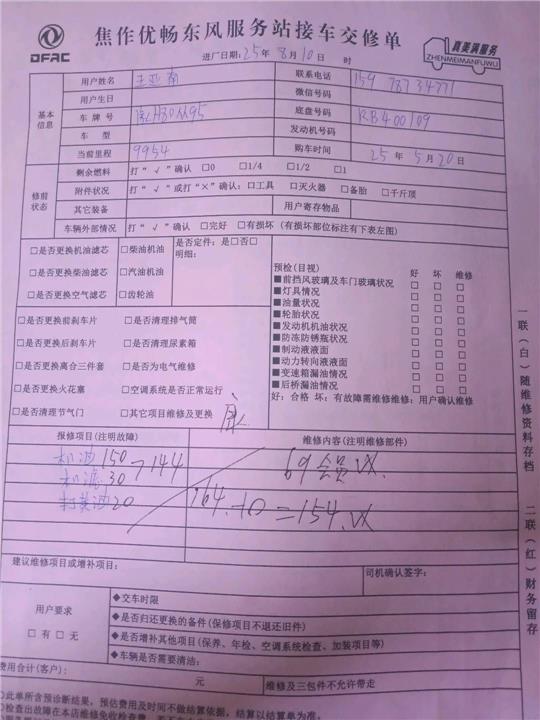 DFAC
焦作优畅东风服务站接车交修单
真美满服务
ZHENMEIMANFUWU
进厂日期:25年 8月10日 时
基本信息
用户姓名 王亚南 联系电话
用户生日 微信号码
车牌号 底盘号码 RB400109
车 型 发动机号码
当前里程 9954 购车时间 25年 5月20日
修前状态
剩余燃料 打“√”确认 □0 □1/4 □1/2 □1
附件状况 打“√”或打“×”确认:□工具 □灭火器 □备胎 □千斤顶
其它装备 用户寄存物品
车辆外部情况 打“√”确认 □完好 □有损坏(有损坏部位标注有下表左图)
□是否更换机油滤芯 □柴油机油 是否定件:是□否□
明细:
□是否更换柴油滤芯 □汽油机油
□是否更换空气滤芯 □齿轮油
□是否更换前刹车片 □是否清理排气筒
□是否更换后刹车片 □是否清理尿素箱
□是否更换离合三件套 □是否为电气维修
□是否更换火花塞 □空调系统是否正常运行
□是否清理节气门 □其它项目维修及更换
预检(目视) 好 坏 维修
■前挡风玻璃及车门玻璃状况 □ □ □
■灯具情况 □ □ □
■油量状况 □ □ □
■轮胎状况 □ □ □
■发动机机油状况 □ □ □
■防冻防锈瓶状况 □ □ □
■制动液液面 □ □ □
■动力转向液液面 □ □ □
■变速箱漏油情况 □ □ □
■后桥漏油情况 □ □ □
好:合格 坏:有故障需维修维修:用户确认维修
报修项目(注明故障) 维修内容(注明维修部件)
机油 150 144
机滤 30
打黄油 20
69会员
164-10=154.
建议维修项目或增补项目: 司机确认签字:
用户要求
□有 □无
◆交车时限
◆是否归还更换的备件(保修项目不退还旧件)
◆是否增补其他项目(保养、年检、空调系统检查、加装项目等)
◆车辆是否需要清油:
费用合计(客户): 元 维修及三包件不允许带走
○此单所含预诊断结果,预估费用及时间不做结算依据,结算以结算单为准。
一联(白)随维修资料存档
二联(红)财务留存